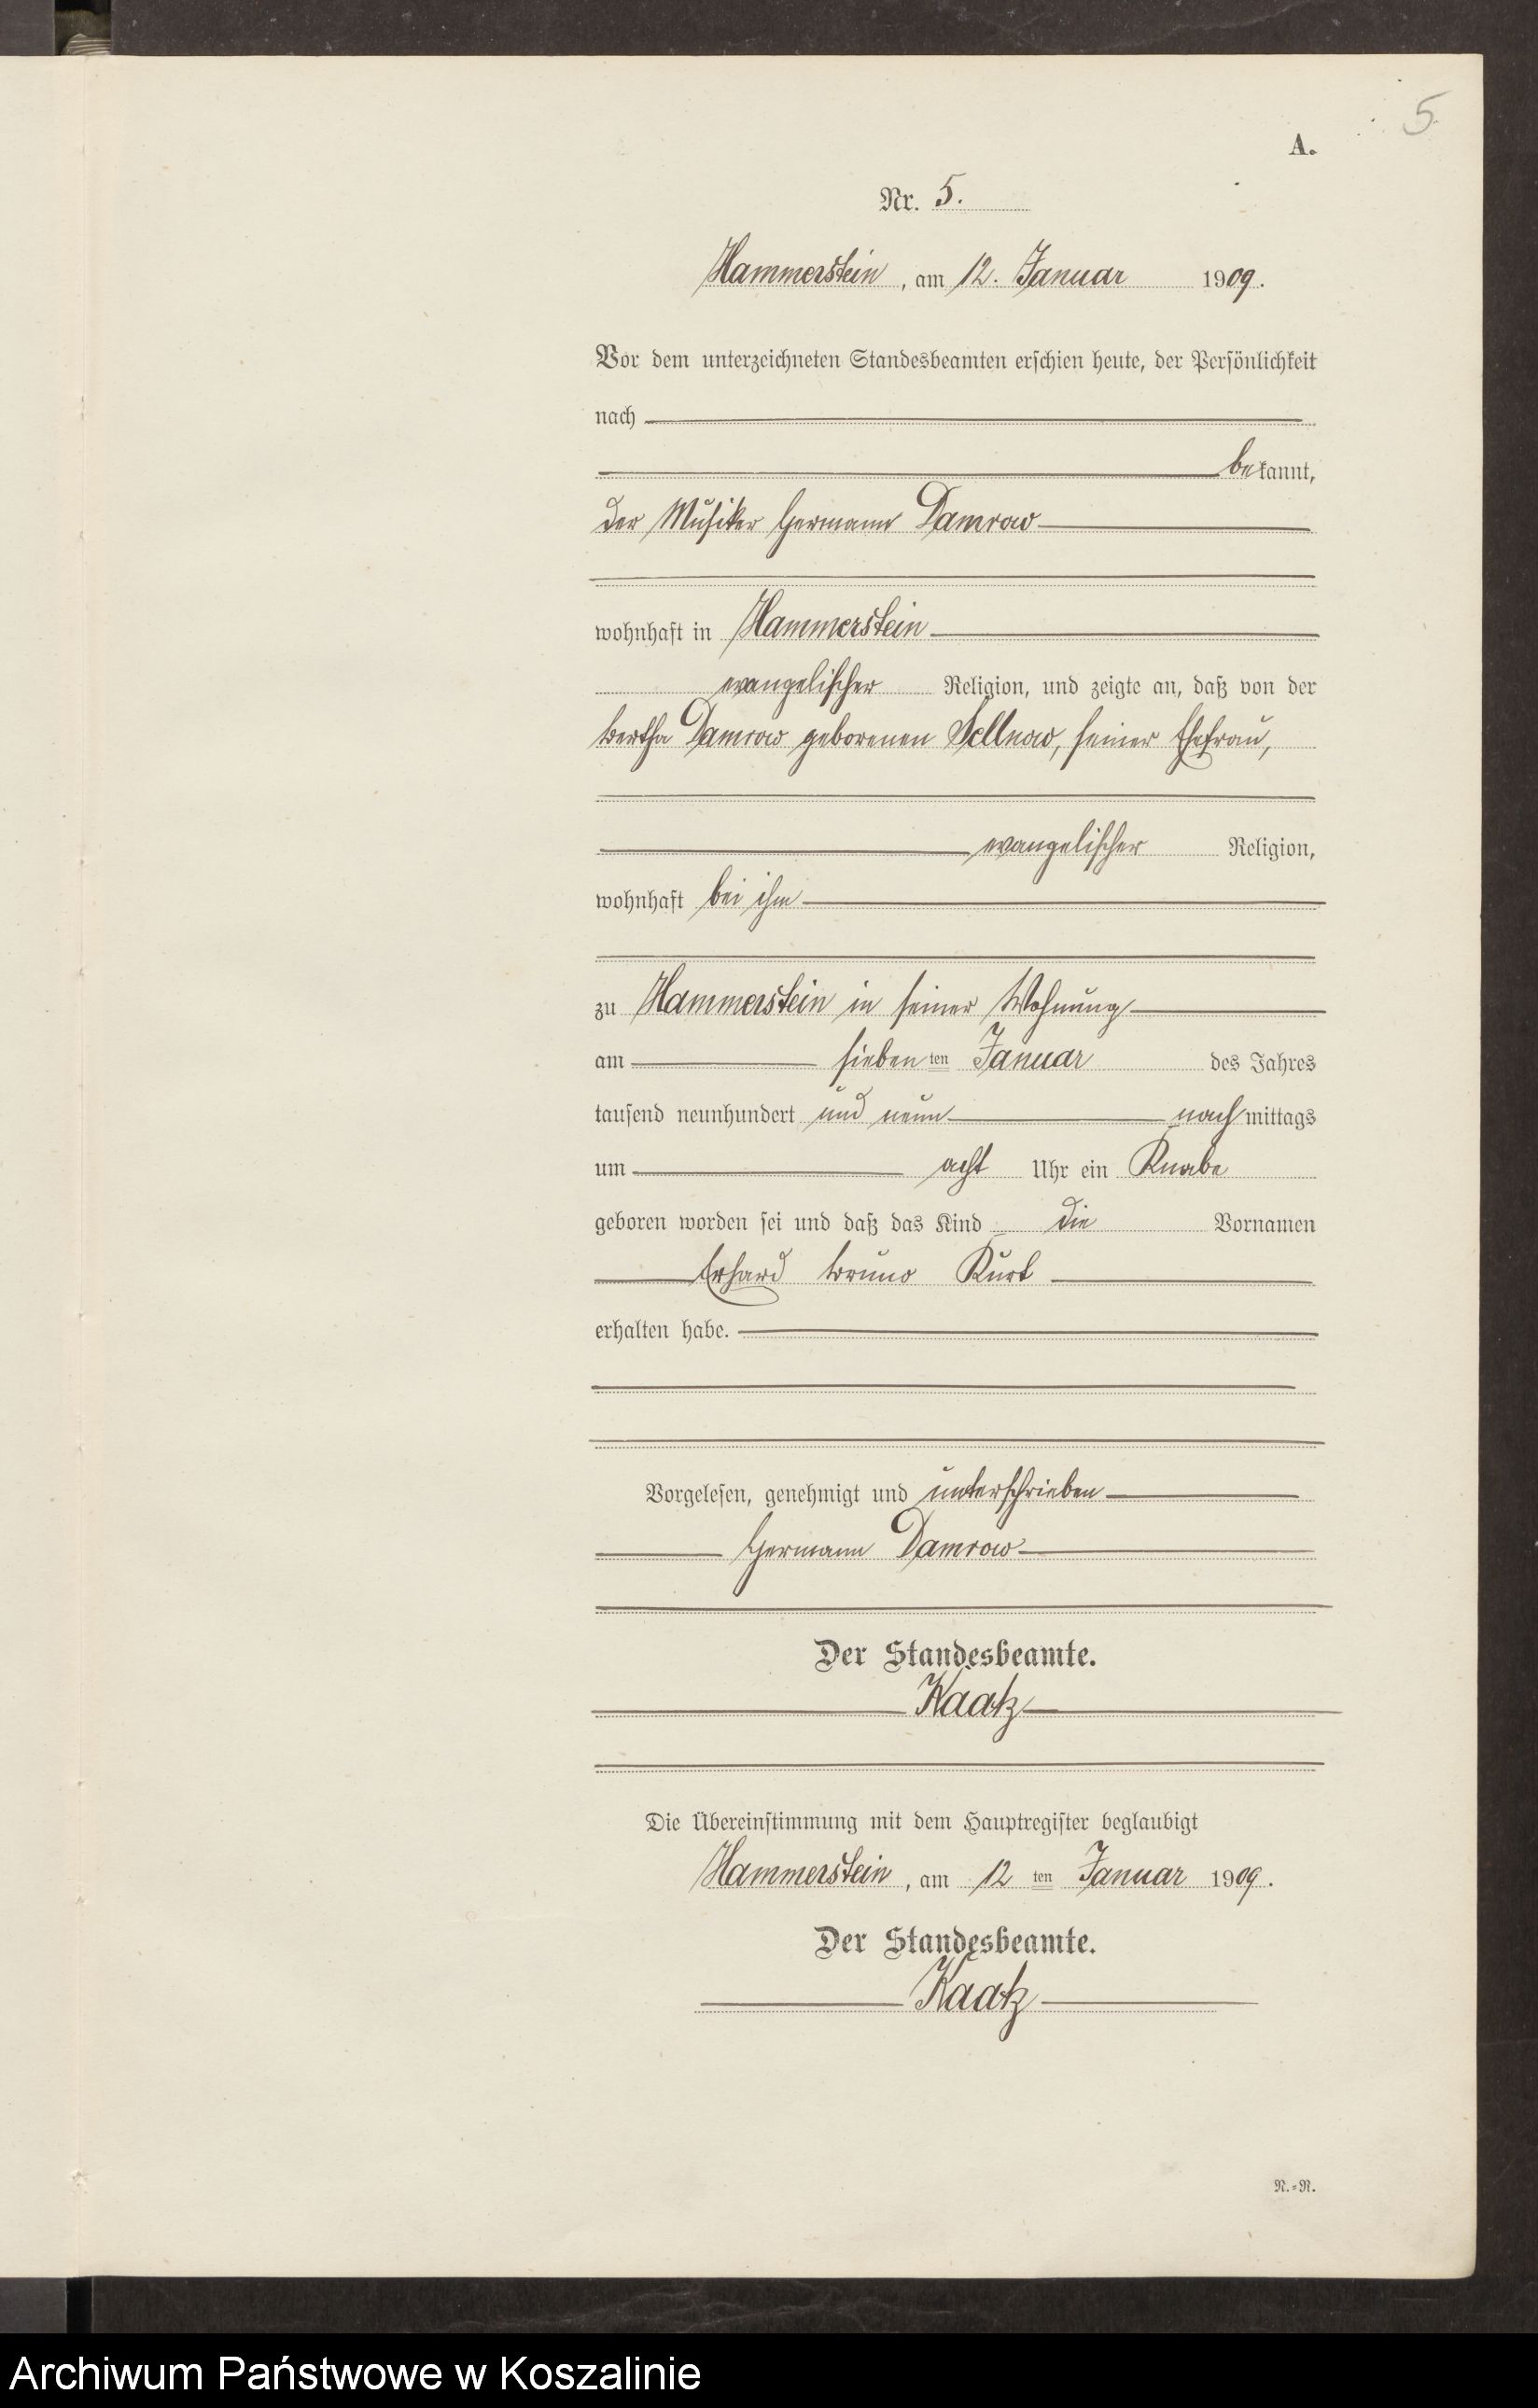 5
A.
Nr. 5.
Hammerstein, am 12. Januar 1909.
Vor dem unterzeichneten Standesbeamten erschien heute, der Persönlichkeit
nach
bekannt,
der Musiker Hermann Damrow
wohnhaft in Hammerstein
evangelischer Religion, und zeigte an, daß von der
Bertha Damrow geborenen Sellnow, seiner Ehefrau,
evangelischer Religion,
wohnhaft bei ihm
zu Hammerstein in seiner Wohnung
am siebenten Januar des Jahres
tausend neunhundert und neun nachmittags
um acht Uhr ein Knabe
geboren worden sei und daß das Kind die Vornamen
Erhard Bruno Kurt
erhalten habe.
Vorgelesen, genehmigt und unterschrieben
Hermann Damrow
Der Standesbeamte.
Kaatz
Die Übereinstimmung mit dem Hauptregister beglaubigt
Hammerstein, am 12 ten Januar 1909.
Der Standesbeamte.
Kaatz
N.=N.
Archiwum Państwowe w Koszalinie